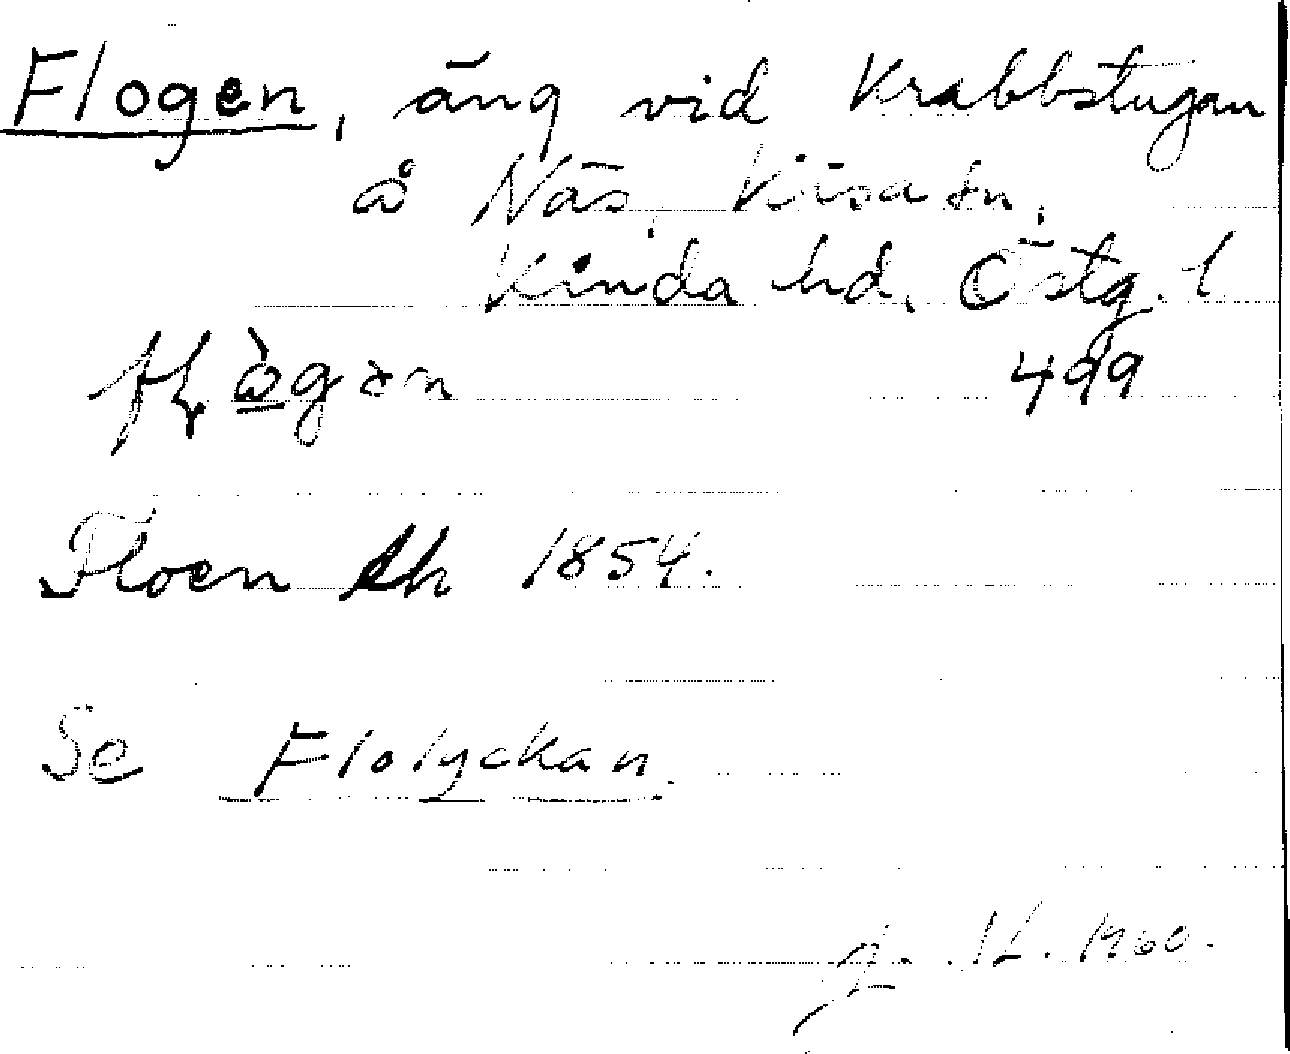 Flogen, äng vid Krabbstugan
å Näs, Kisa sn,
Kinda hd, Östg. l
499
Floen lh 1854.
Se Flolyckan.
1960.